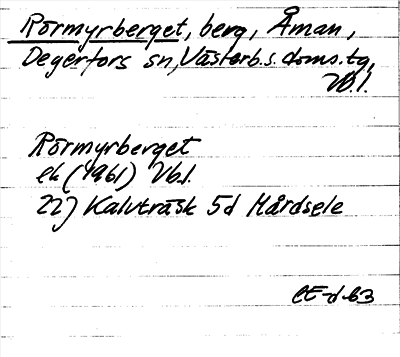 Rörmyrberget, berg, Åman,
Degerfors sn, Västerb.s. doms.tg,
Vb.l.
Rörmyrberget
ek (1961) Vb.l.
22J Kalvträsk 5d Mårdsele